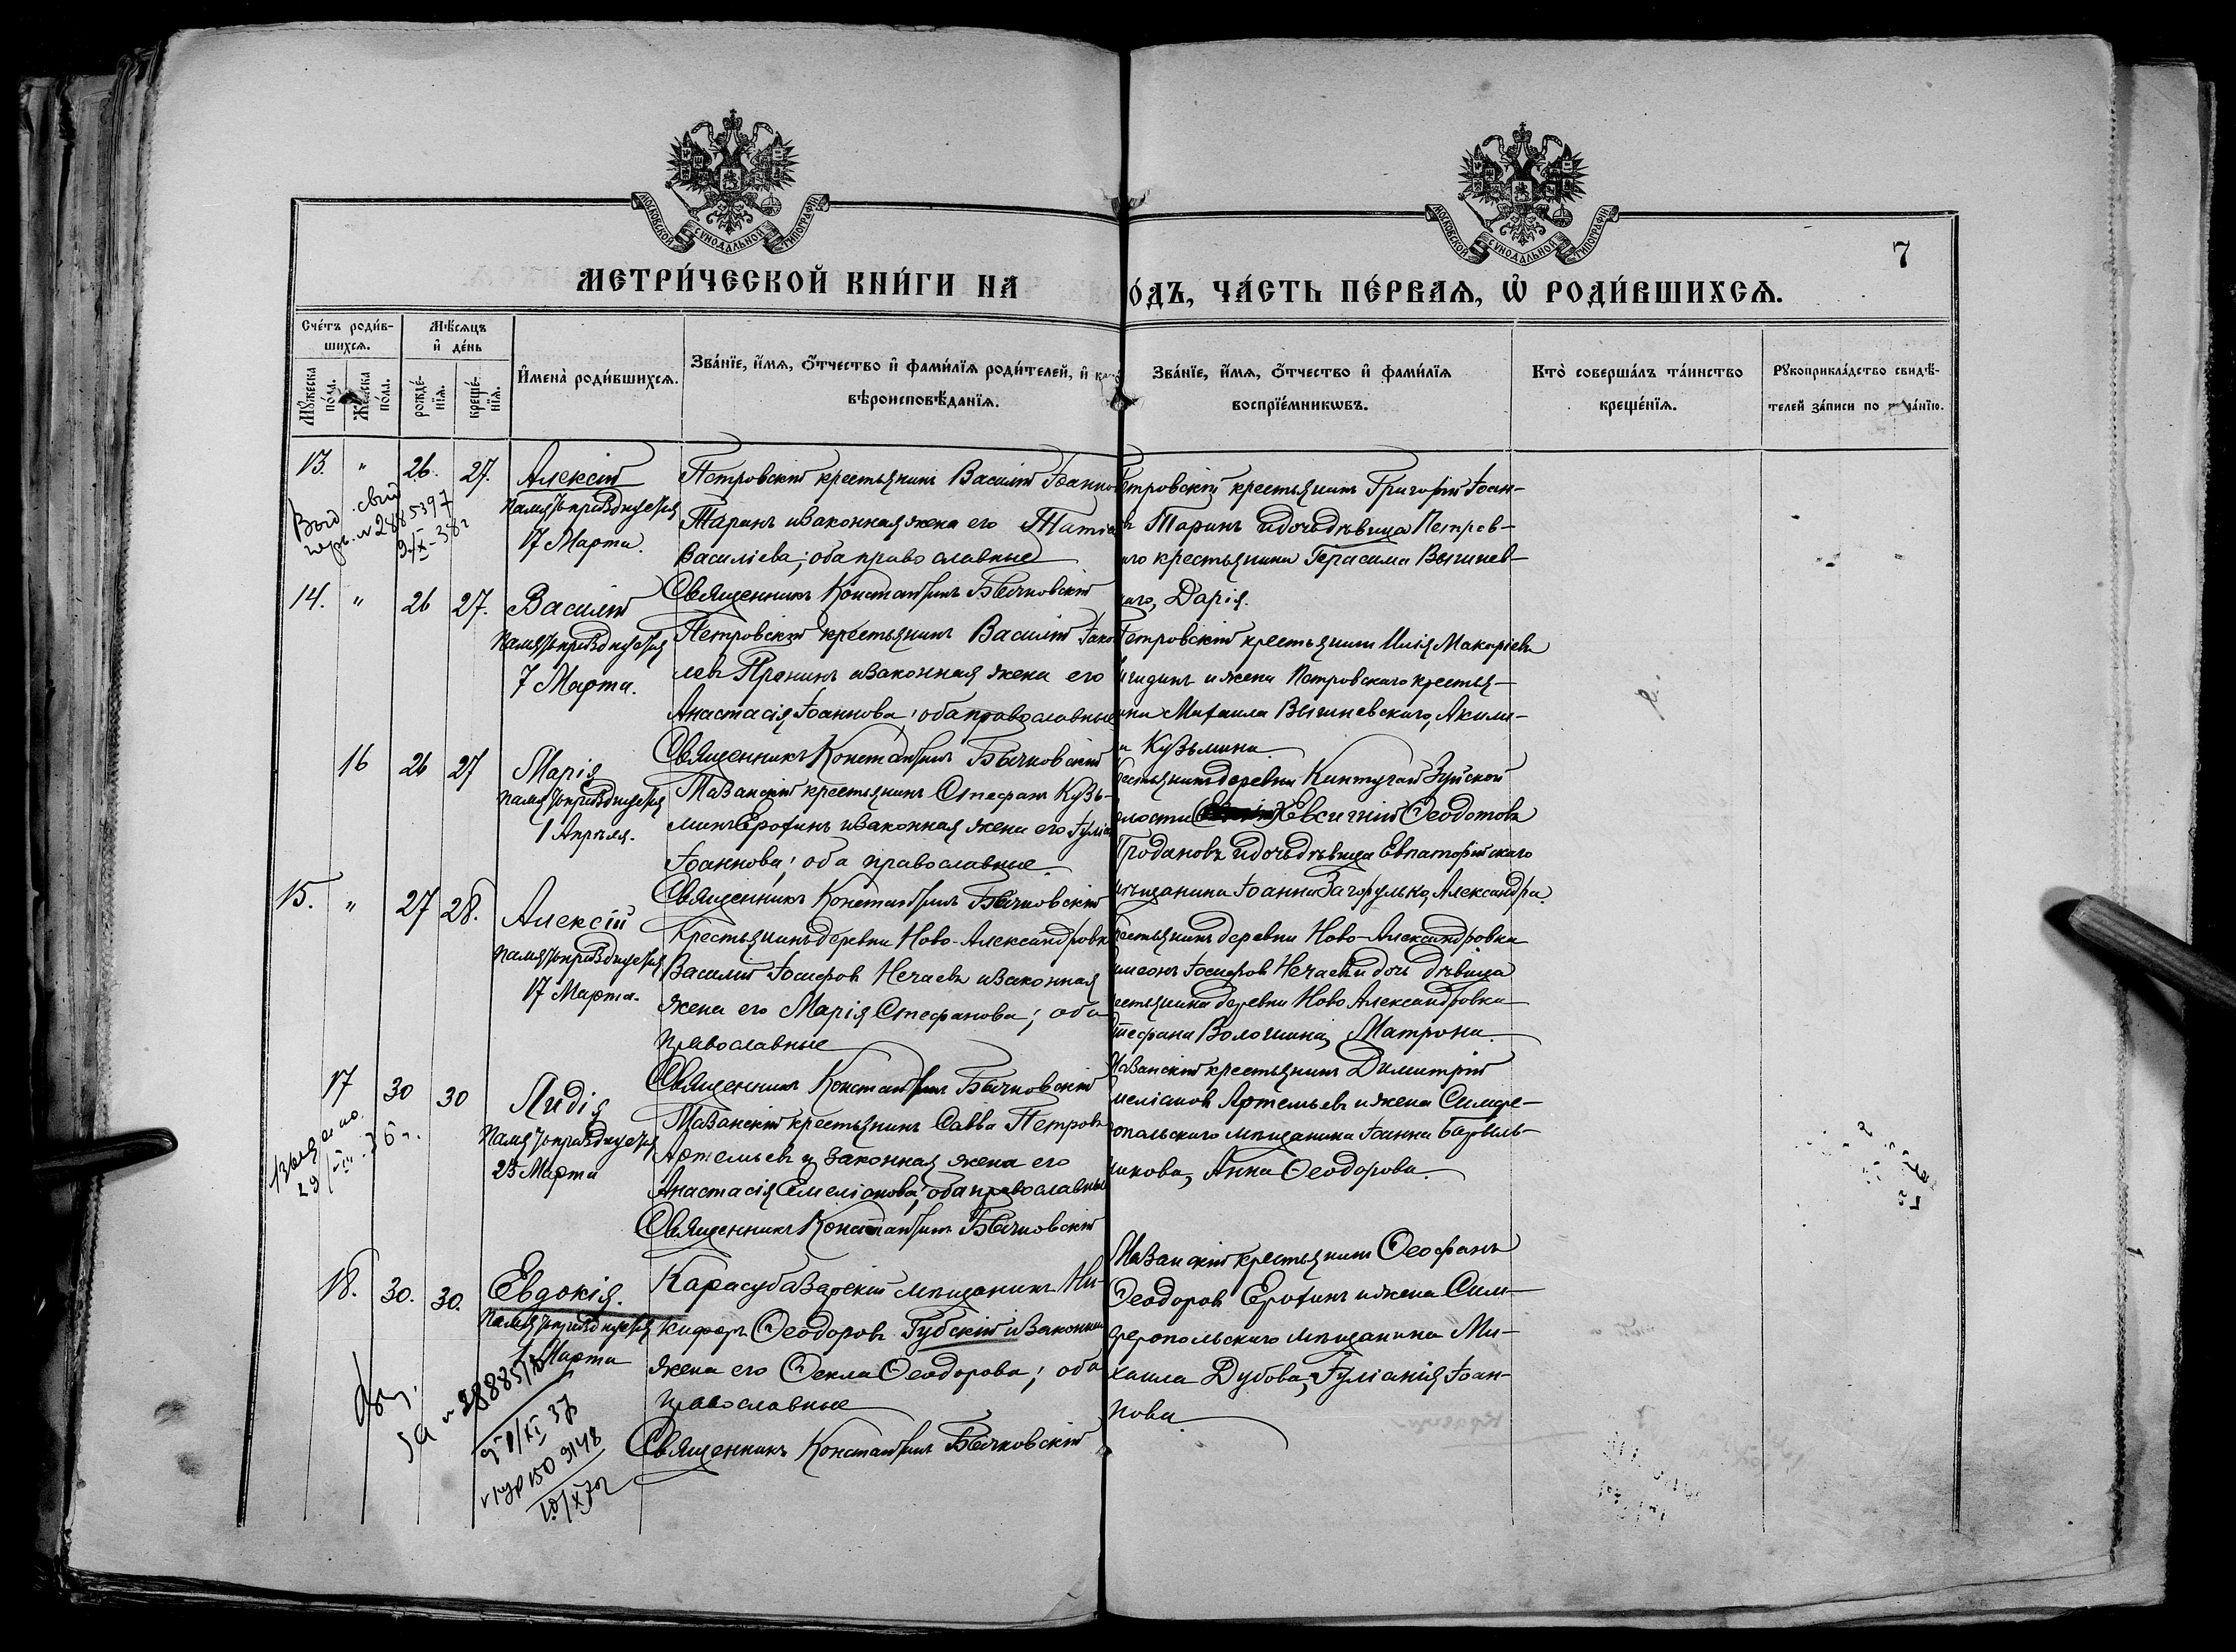 МОСКОВСКОЙ СУНОДАЛЬНОЙ ТИПОГРАФІИ
МОСКОВСКОЙ СУНОДАЛЬНОЙ ТИПОГРАФІИ
7
МЕТРИ́ЧЕСКОЙ КНИ́ГИ НА
О́ДЪ, ЧА́СТЬ ПЕ́РВАѦ, Ѡ҆ РОДИ́ВШИХСѦ.
Сче́тъ роди́в-
шихсѧ.
Мꙋ́жеска по́ла.
Же́нска по́ла.
Мѣ́сѧцъ
и҆ де́нь
рожде́-
нїѧ.
креще́-
нїѧ.
И҆мена̀ роди́вшихсѧ.
Зва́нїе, и҆́мѧ, ѻ҆́тчество и҆ фами́лїѧ роди́телей, и҆
вѣроисповѣ́данїѧ.
Зва́нїе, и҆́мѧ, ѻ҆́тчество и҆ фами́лїѧ
воспрїе́мникѡвъ.
Кто̀ соверша́лъ та́инство
креще́нїѧ.
Рꙋкоприкла́дство свидѣ́-
телей за́писи по
13. " 26. 27. Алексій
17 Марта.
Петровскій крестьянинъ Василій Іоанно
Таранъ и законная жена его Татіа
Василіева; оба православные
Священникъ Константинъ Бычковскій
етровскій крестьянинъ Григорій Іоан-
въ Таранъ и дочь дѣвица Петров-
аго крестьянина Герасима Вышнев-
аго, Дарія.
Выд. свид.
№ 2885397
9/X-38г
14. " 26 27. Василій
7 Марта.
Петровскій крестьянинъ Василій Іако
левъ Пронинъ и законная жена его
Анастасія Іоаннова; оба православные
Священникъ Константинъ Бычковскій
Петровскій крестьянинъ Илія Макаріевъ
и жена Петровскаго крестья-
нина Михаила Вышневскаго, Акили-
а Кузьмина
16 26 27 Марія
1 Апрѣля.
Мазанскій крестьянинъ Стефанъ Кузь-
минъ Ерохинъ и законная жена его Іуліа
Іоаннова; оба православные.
Священникъ Константинъ Бычковскій
рестьянинъ деревни Кинтугай Зуйской
олости Евсигній Ѳеодотовъ
Гродановъ и дочь дѣвица Евпаторійскаго
мѣщанина Іоанна Загорулько, Александра.
15. " 27 28. Алексій
17 Марта.
Крестьянинъ деревни Ново-Александровки
Василій Іосифовъ Нечаевъ и законная
жена его Марія Стефанова; оба
православные
Священникъ Константинъ Бычковскій
рестьянинъ деревни Ново-Александровка
имеонъ Іосифовъ Нечаевъ и дочь дѣвица
рестьянина деревни Ново Александровки
тефана Волошина, Матрона.
17 30 30 Лидія
23 Марта
Мазанскій крестьянинъ Савва Петровъ
Артемьевъ и законная жена его
Анастасія Емеліанова; оба православные
Священникъ Константинъ Бычковскій
Мазанскій крестьянинъ Димитрій
меліановъ Артемьевъ и жена Симфе-
опольскаго мѣщанина Іоанна
никова, Анна Ѳеодорова.
29/VIII 36 г.
18. 30. 30. Евдокія.
1 Марта
Карасубазарскій мѣщанинъ Ни-
кифоръ Ѳеодоровъ Губскій и законная
жена его Ѳекла Ѳеодорова; оба
православные
Священникъ Константинъ Бычковскій
Мазанскій крестьянинъ Ѳеофанъ
Ѳеодоровъ Ерохинъ и жена Сим-
феропольскаго мѣщанина Ми-
хаила Дубова, Іуліанія Іоан-
нова